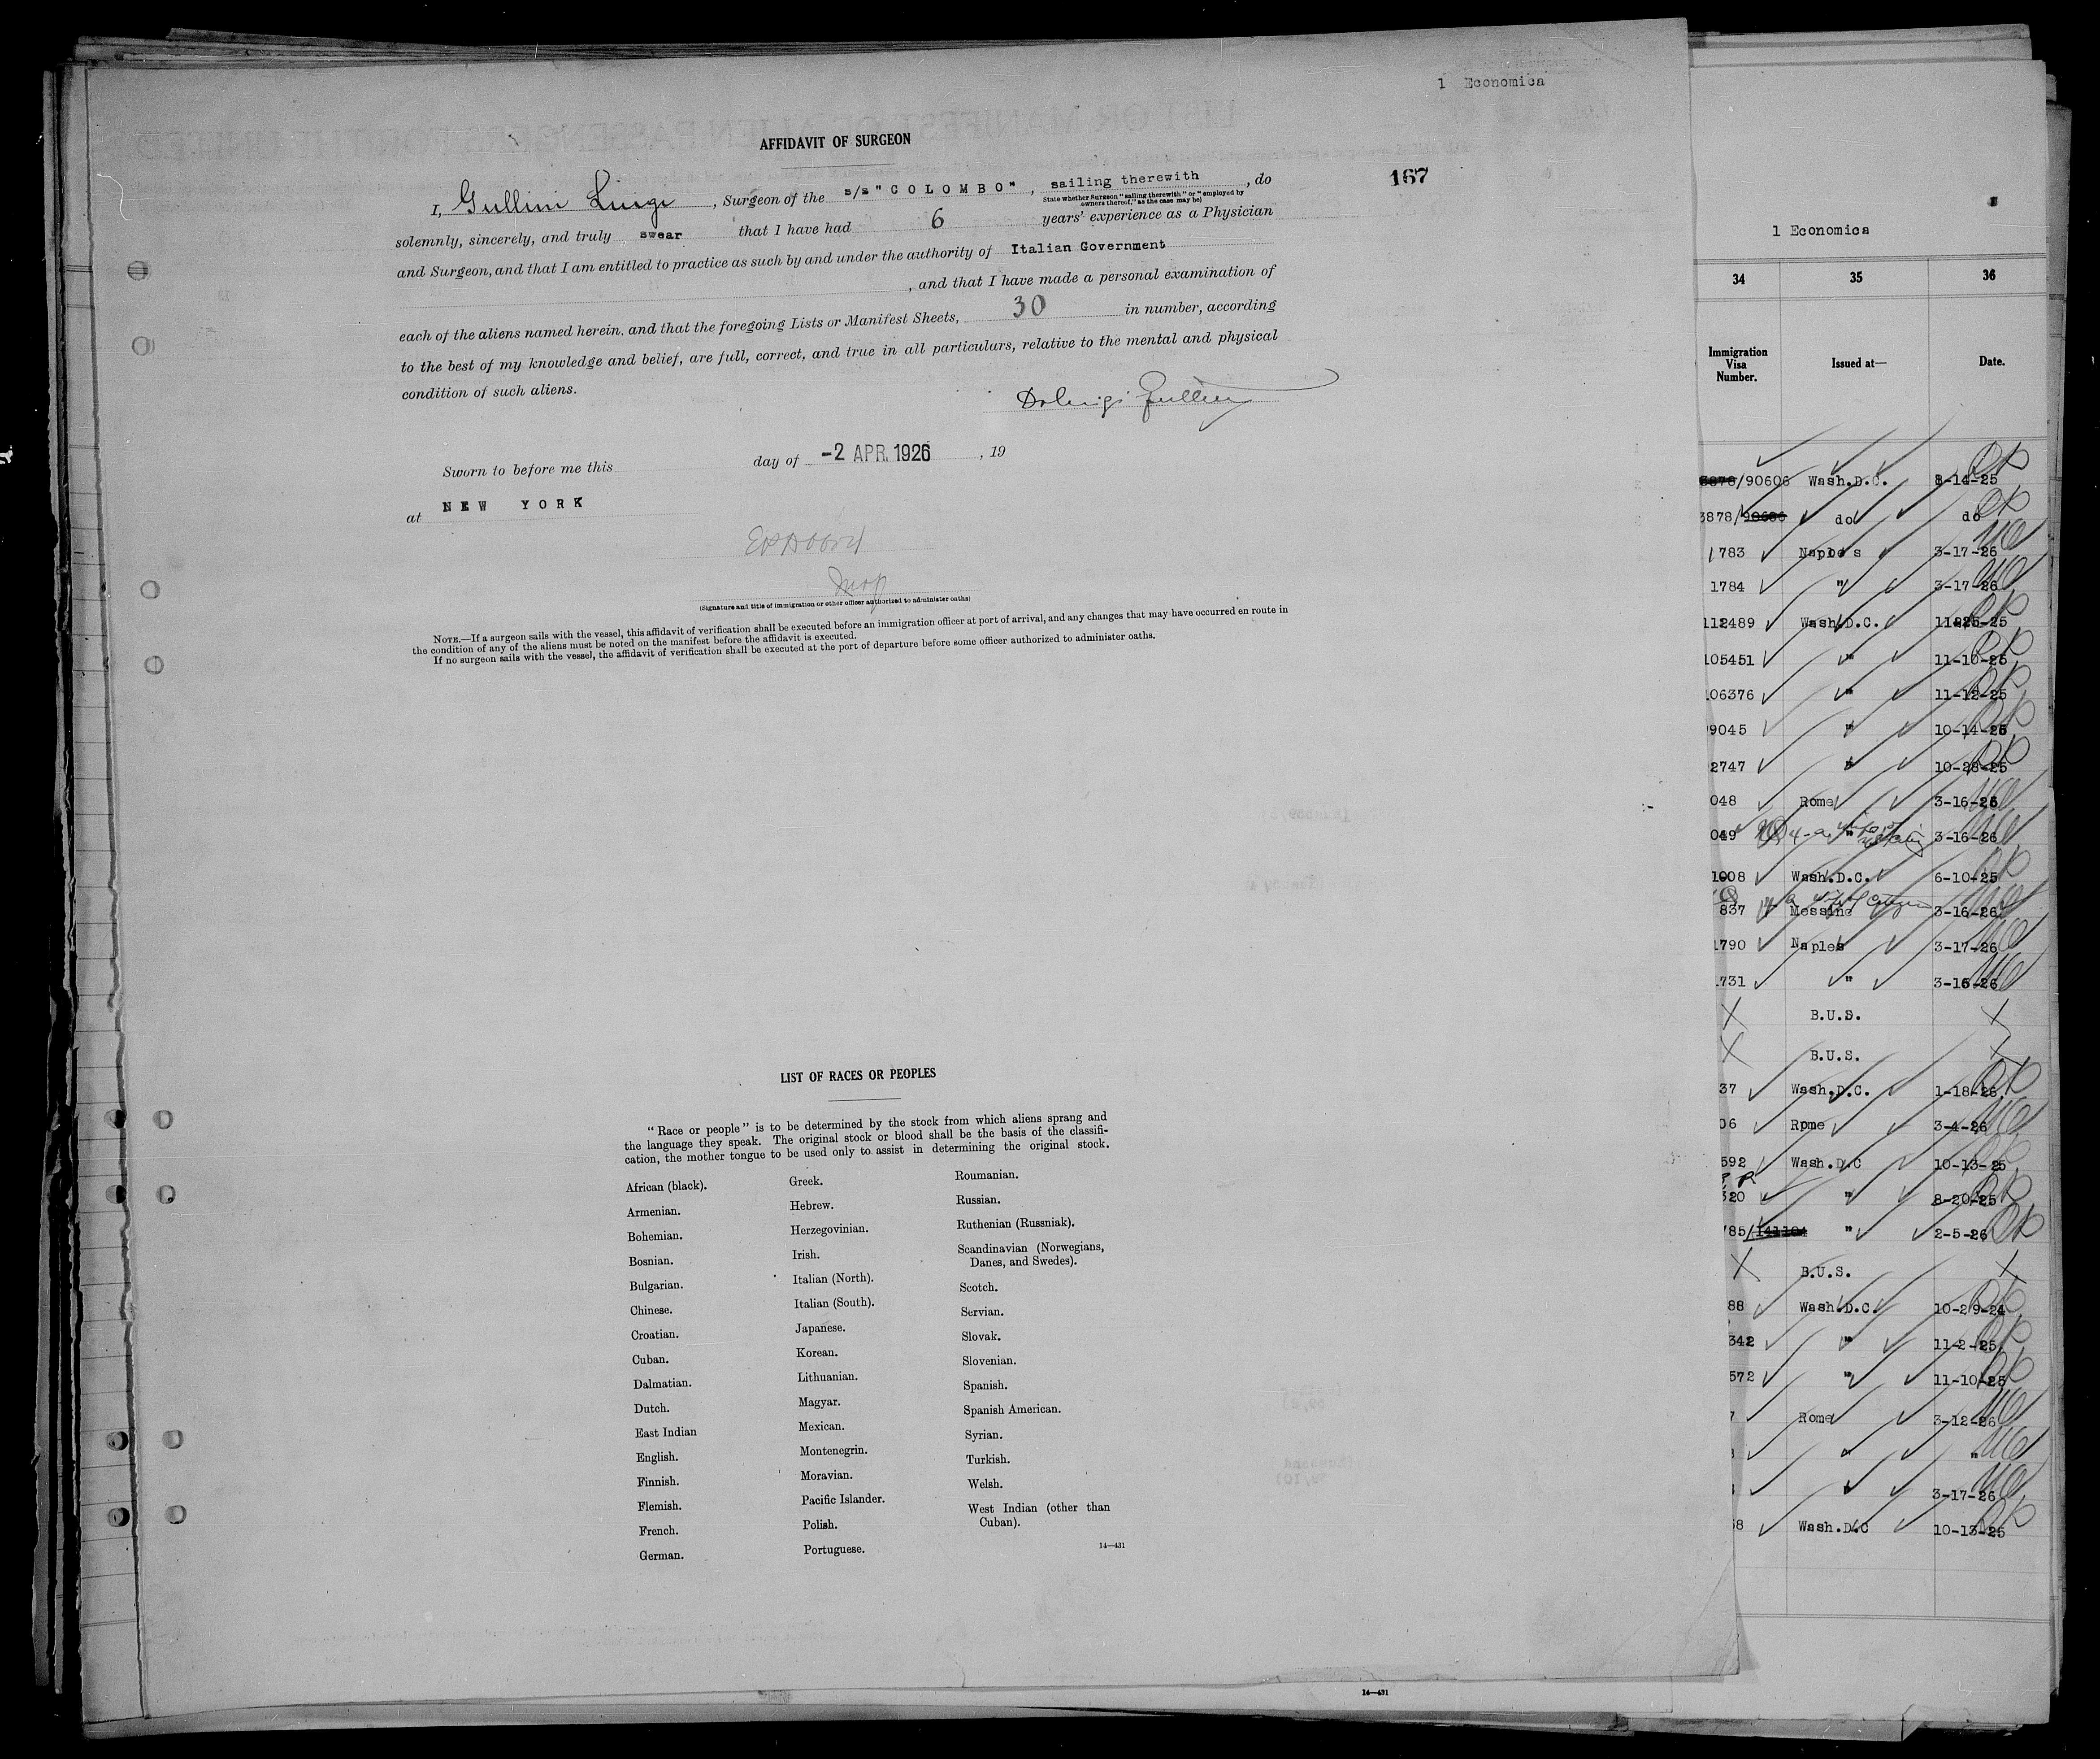 1 Economica
AFFIDAVIT OF SURGEON
167
I, Gullini Luigi, Surgeon of the s/s "COLOMBO", sailing therewith, do
State whether Surgeon "sailing therewith" or "employed by
owners thereof," as the case may be)
solemnly, sincerely, and truly swear that I have had 6 years' experience as a Physician
and Surgeon, and that I am entitled to practice as such by and under the authority of Italian Government
, and that I have made a personal examination of
each of the aliens named herein, and that the foregoing Lists or Manifest Sheets, 30 in number, according
to the best of my knowledge and belief, are full, correct, and true in all particulars, relative to the mental and physical
condition of such aliens.
Dr Luigi Gullini
Sworn to before me this day of -2 APR. 1926, 19
at NEW YORK
Insp
(Signature and title of immigration or other officer authorized to administer oaths)
NOTE.—If a surgeon sails with the vessel, this affidavit of verification shall be executed before an immigration officer at port of arrival, and any changes that may have occurred en route in
the condition of any of the aliens must be noted on the manifest before the affidavit is executed.
If no surgeon sails with the vessel, the affidavit of verification shall be executed at the port of departure before some officer authorized to administer oaths.
LIST OF RACES OR PEOPLES
"Race or people" is to be determined by the stock from which aliens sprang and
the language they speak. The original stock or blood shall be the basis of the classifi-
cation, the mother tongue to be used only to assist in determining the original stock.
African (black).
Armenian.
Bohemian.
Bosnian.
Bulgarian.
Chinese.
Croatian.
Cuban.
Dalmatian.
Dutch.
East Indian
English.
Finnish.
Flemish.
French.
German.
Greek.
Hebrew.
Herzegovinian.
Irish.
Italian (North).
Italian (South).
Japanese.
Korean.
Lithuanian.
Magyar.
Mexican.
Montenegrin.
Moravian.
Pacific Islander.
Polish.
Portuguese.
Roumanian.
Russian.
Ruthenian (Russniak).
Scandinavian (Norwegians,
Danes, and Swedes).
Scotch.
Servian.
Slovak.
Slovenian.
Spanish.
Spanish American.
Syrian.
Turkish.
Welsh.
West Indian (other than
Cuban).
14—431
14—431
1 Economica
34 35 36
Immigration
Visa
Number.
Issued at—
Date.
/90606 Wash.D.C. 8-14-25 OK
3878/ do do OK
1783 Naples 3-17-26
1784 " 3-17-26
112489 Wash.D.C. 25 OK
105451 " 11-10-25 OK
06376 " 11-12-25 OK
9045 " 10-14-25 OK
2747 " 10-28-25 OK
048 Rome 3-16-26
049 " 3-16-26
1008 Wash.D.C. 6-10-25 OK
837 Messina 3-16-26
1790 Naples 3-17-26
1731 " 3-16-26
X B.U.S. X
X B.U.S. X
37 Wash.D.C. 1-18-26 OK
06 Rome 3-4-26
592 Wash.D.C 10-13-25 OK
320 " 8-20-25 OK
785/ " 2-5-26 OK
X B.U.S. X
88 Wash.D.C. 10-29-24 OK
342 " 11-2-25 OK
572 " 11-10-25 OK
7 Rome 3-12-26
" "
3-17-26
58 Wash.D.C 10-13-25 OK